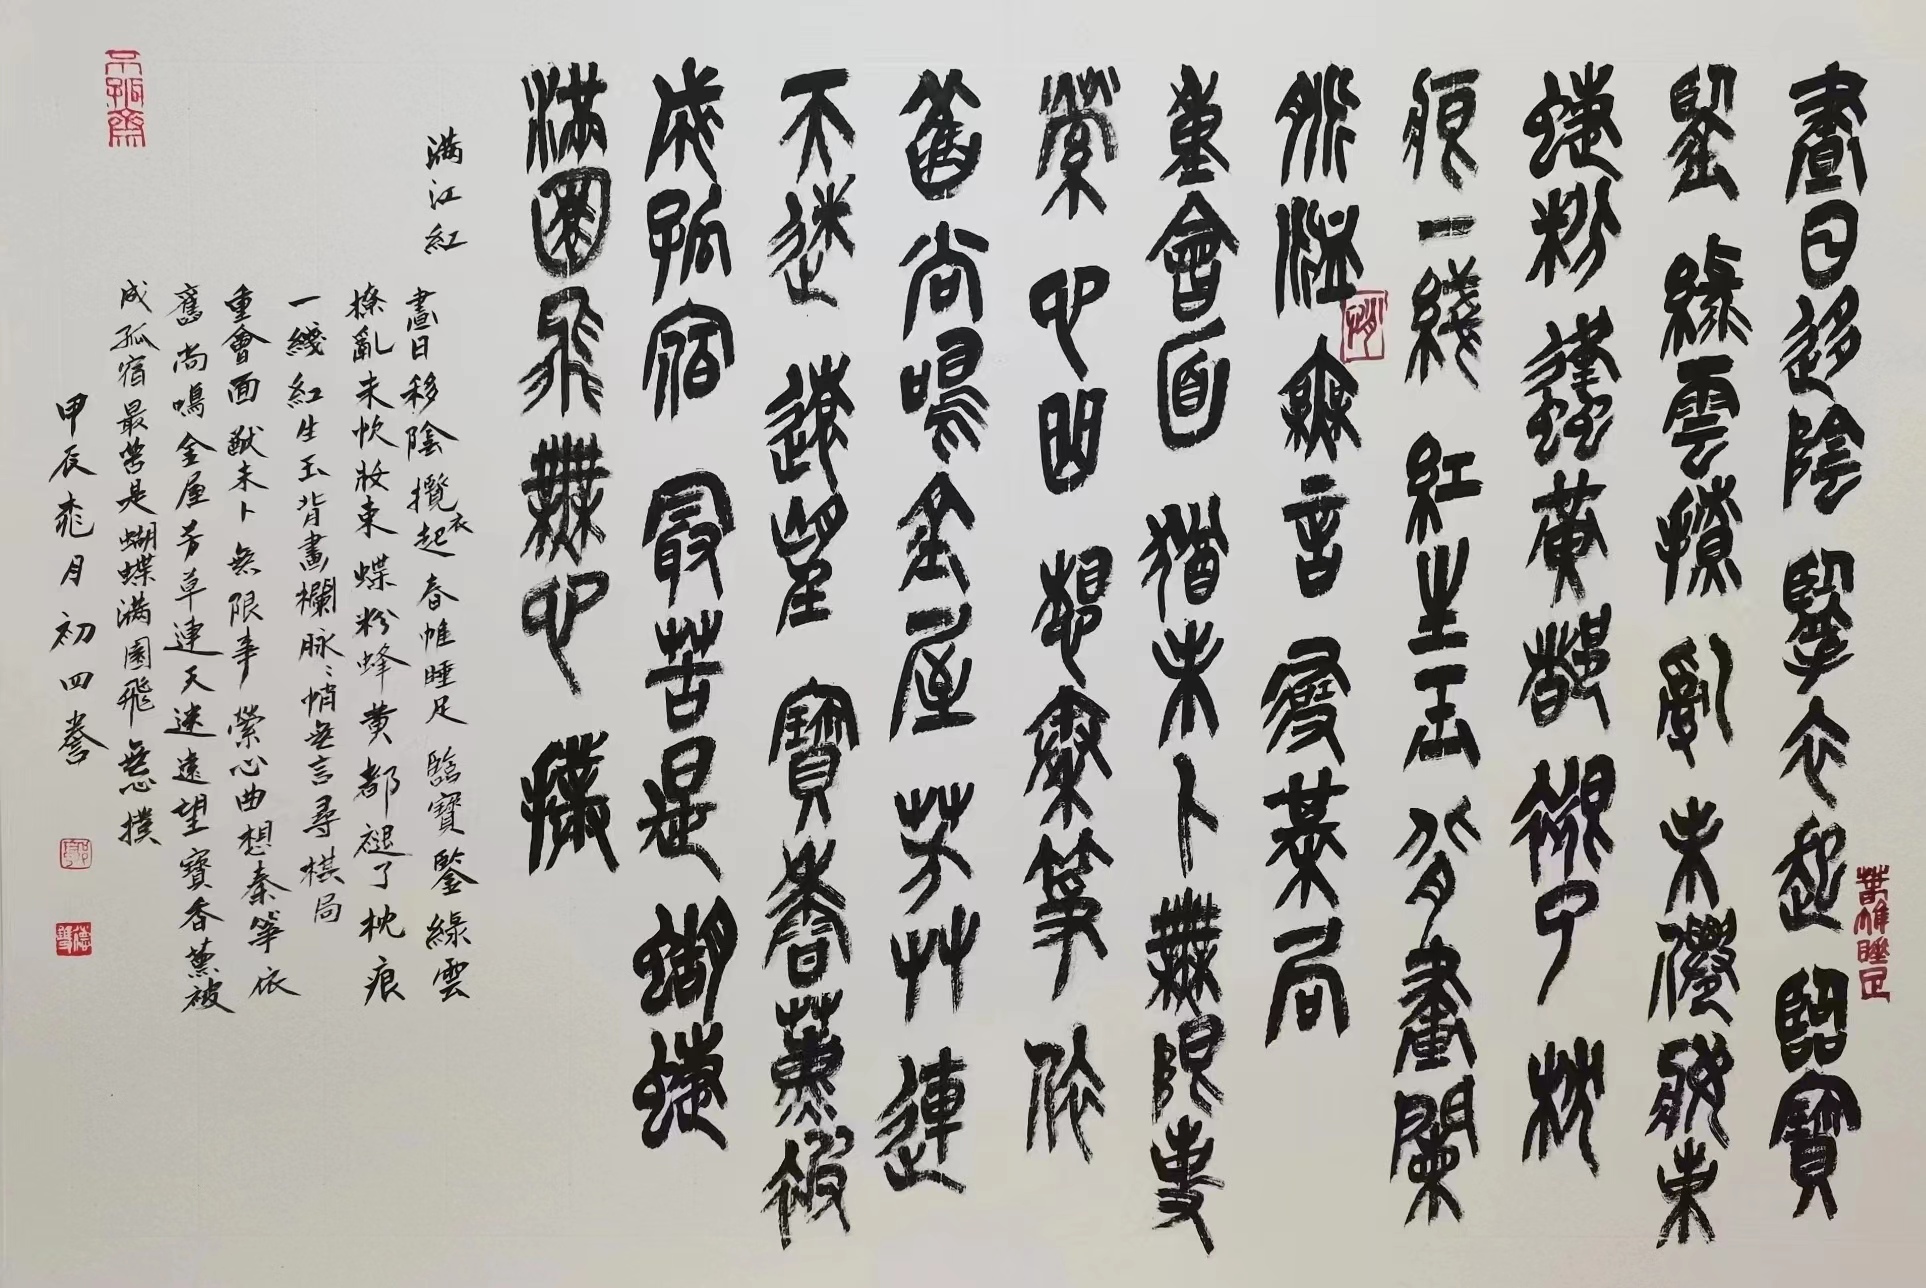 晝日移陰擥衣起臨寶
春帷睡足
鑒綠雲撩亂未𢣷妝束
蝶粉蜂黃都褪了枕
痕一綫紅生玉背畫闌
脈脈無言尋棊局
悄
重會面猶未卜無限事
縈心曲想秦箏依
舊尚鳴金屋芳艸連
天迷遠望寶香薰被
成孤宿最苦是蝴蝶
滿園飛無心撲
滿江紅
晝日移陰攬衣起春帷睡足臨寶鑒綠雲
撩亂未忺妝束蝶粉蜂黃都褪了枕痕
一綫紅生玉背畫欄脉〻悄無言尋棋局
重會面猷未卜無限事縈心曲想秦箏依
舊尚鳴金屋芳草連天迷遠望寶香薰被
成孤宿最苦是蝴蝶滿園飛無心撲
甲辰桃月初四
不孤齋